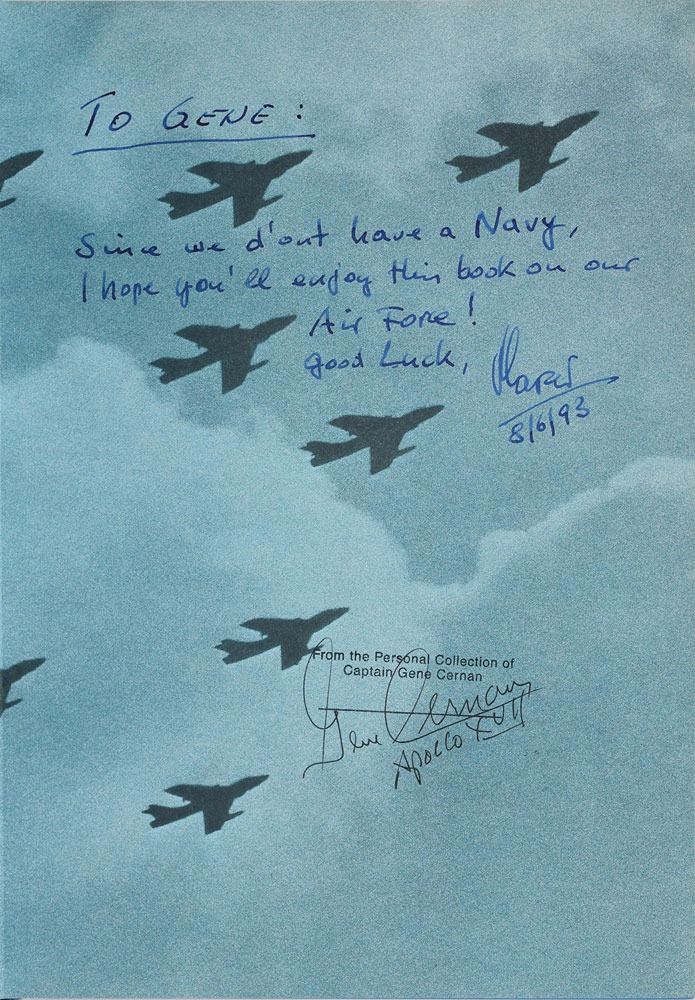 TO GENE:
Since we d'ont have a Navy,
I hope you'll enjoy this book on our
Air Force!
Good Luck,
8/6/93
From the Personal Collection of
Captain Gene Cernan
Gene Cernan
Apollo XVII